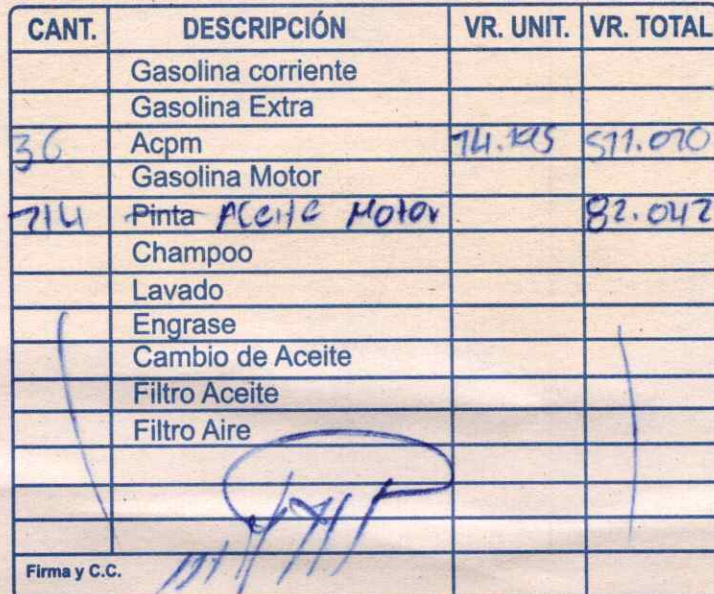 CANT. DESCRIPCIÓN VR. UNIT. VR. TOTAL
Gasolina corriente
Gasolina Extra
36 Acpm 14.195 511.020
Gasolina Motor
Pinta Aceite Motor 82.042
Champoo
Lavado
Engrase
Cambio de Aceite
Filtro Aceite
Filtro Aire
Firma y C.C.